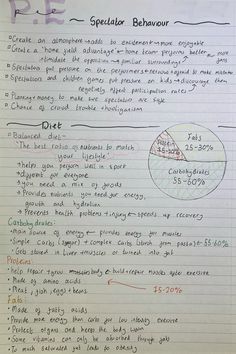 P.E
Spectator Behaviour
Create an atmosphere → adds to excitement → more enjoyable
Create a 'home field advantage' ← home team performs better ← more fans
intimidate the opposition → familiar surroundings
Spectators put pressure on the performers → nervous → afraid to make mistakes
Spectators and children games put pressure on kids → discourages them
negatively affect participation rates
Planning + money to make sure spectators are safe
Chance of crowd trouble → hooliganism
Diet
Balanced diet-
"The best ratio of nutrients to match
your lifestyle"
helps you perform well in sport
different for everyone
you need a mix of foods
Provides nutrients you need for energy,
growth and hydration
Prevents health problems + injury ← speeds up recovery
Protein
15-20%
Fats
25-30%
Carbohydrates
55-60%
Carbohydrates:
Main source of energy → provides energy for muscles
Simple Carbs (sugar) + complex Carbs (starch from pasta) → 55-60%
Gets stored in liver + muscles or turned into fat
Proteins:
helps repair tissues → build + repair muscles after exercise
Made of amino acids
Meat, fish, eggs + beans
15-20%
Fats:
Made of fatty acids
Provide more energy than carbs for low intensity exercise
Protects organs and keeps the body warm
Some vitamins can only be absorbed through fat
Too much saturated fat leads to obesity